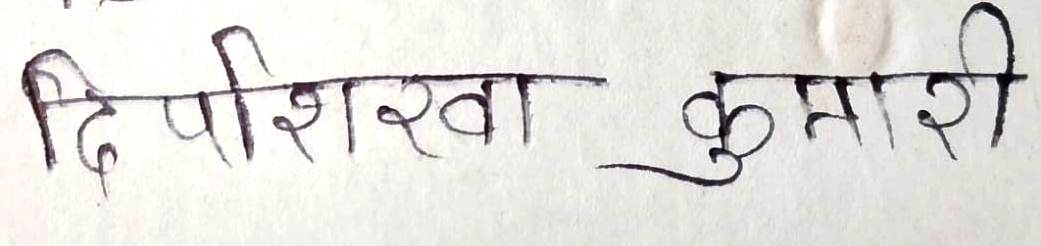 दिपशिखा कुमारी